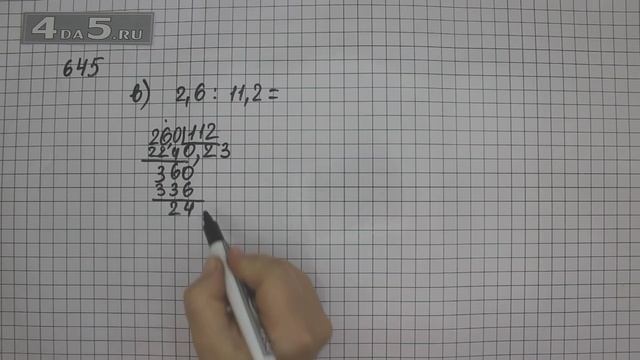 4ДА5.RU
645
в) 2,6 : 11,2 =
260|112
224 0,23
360
336
24